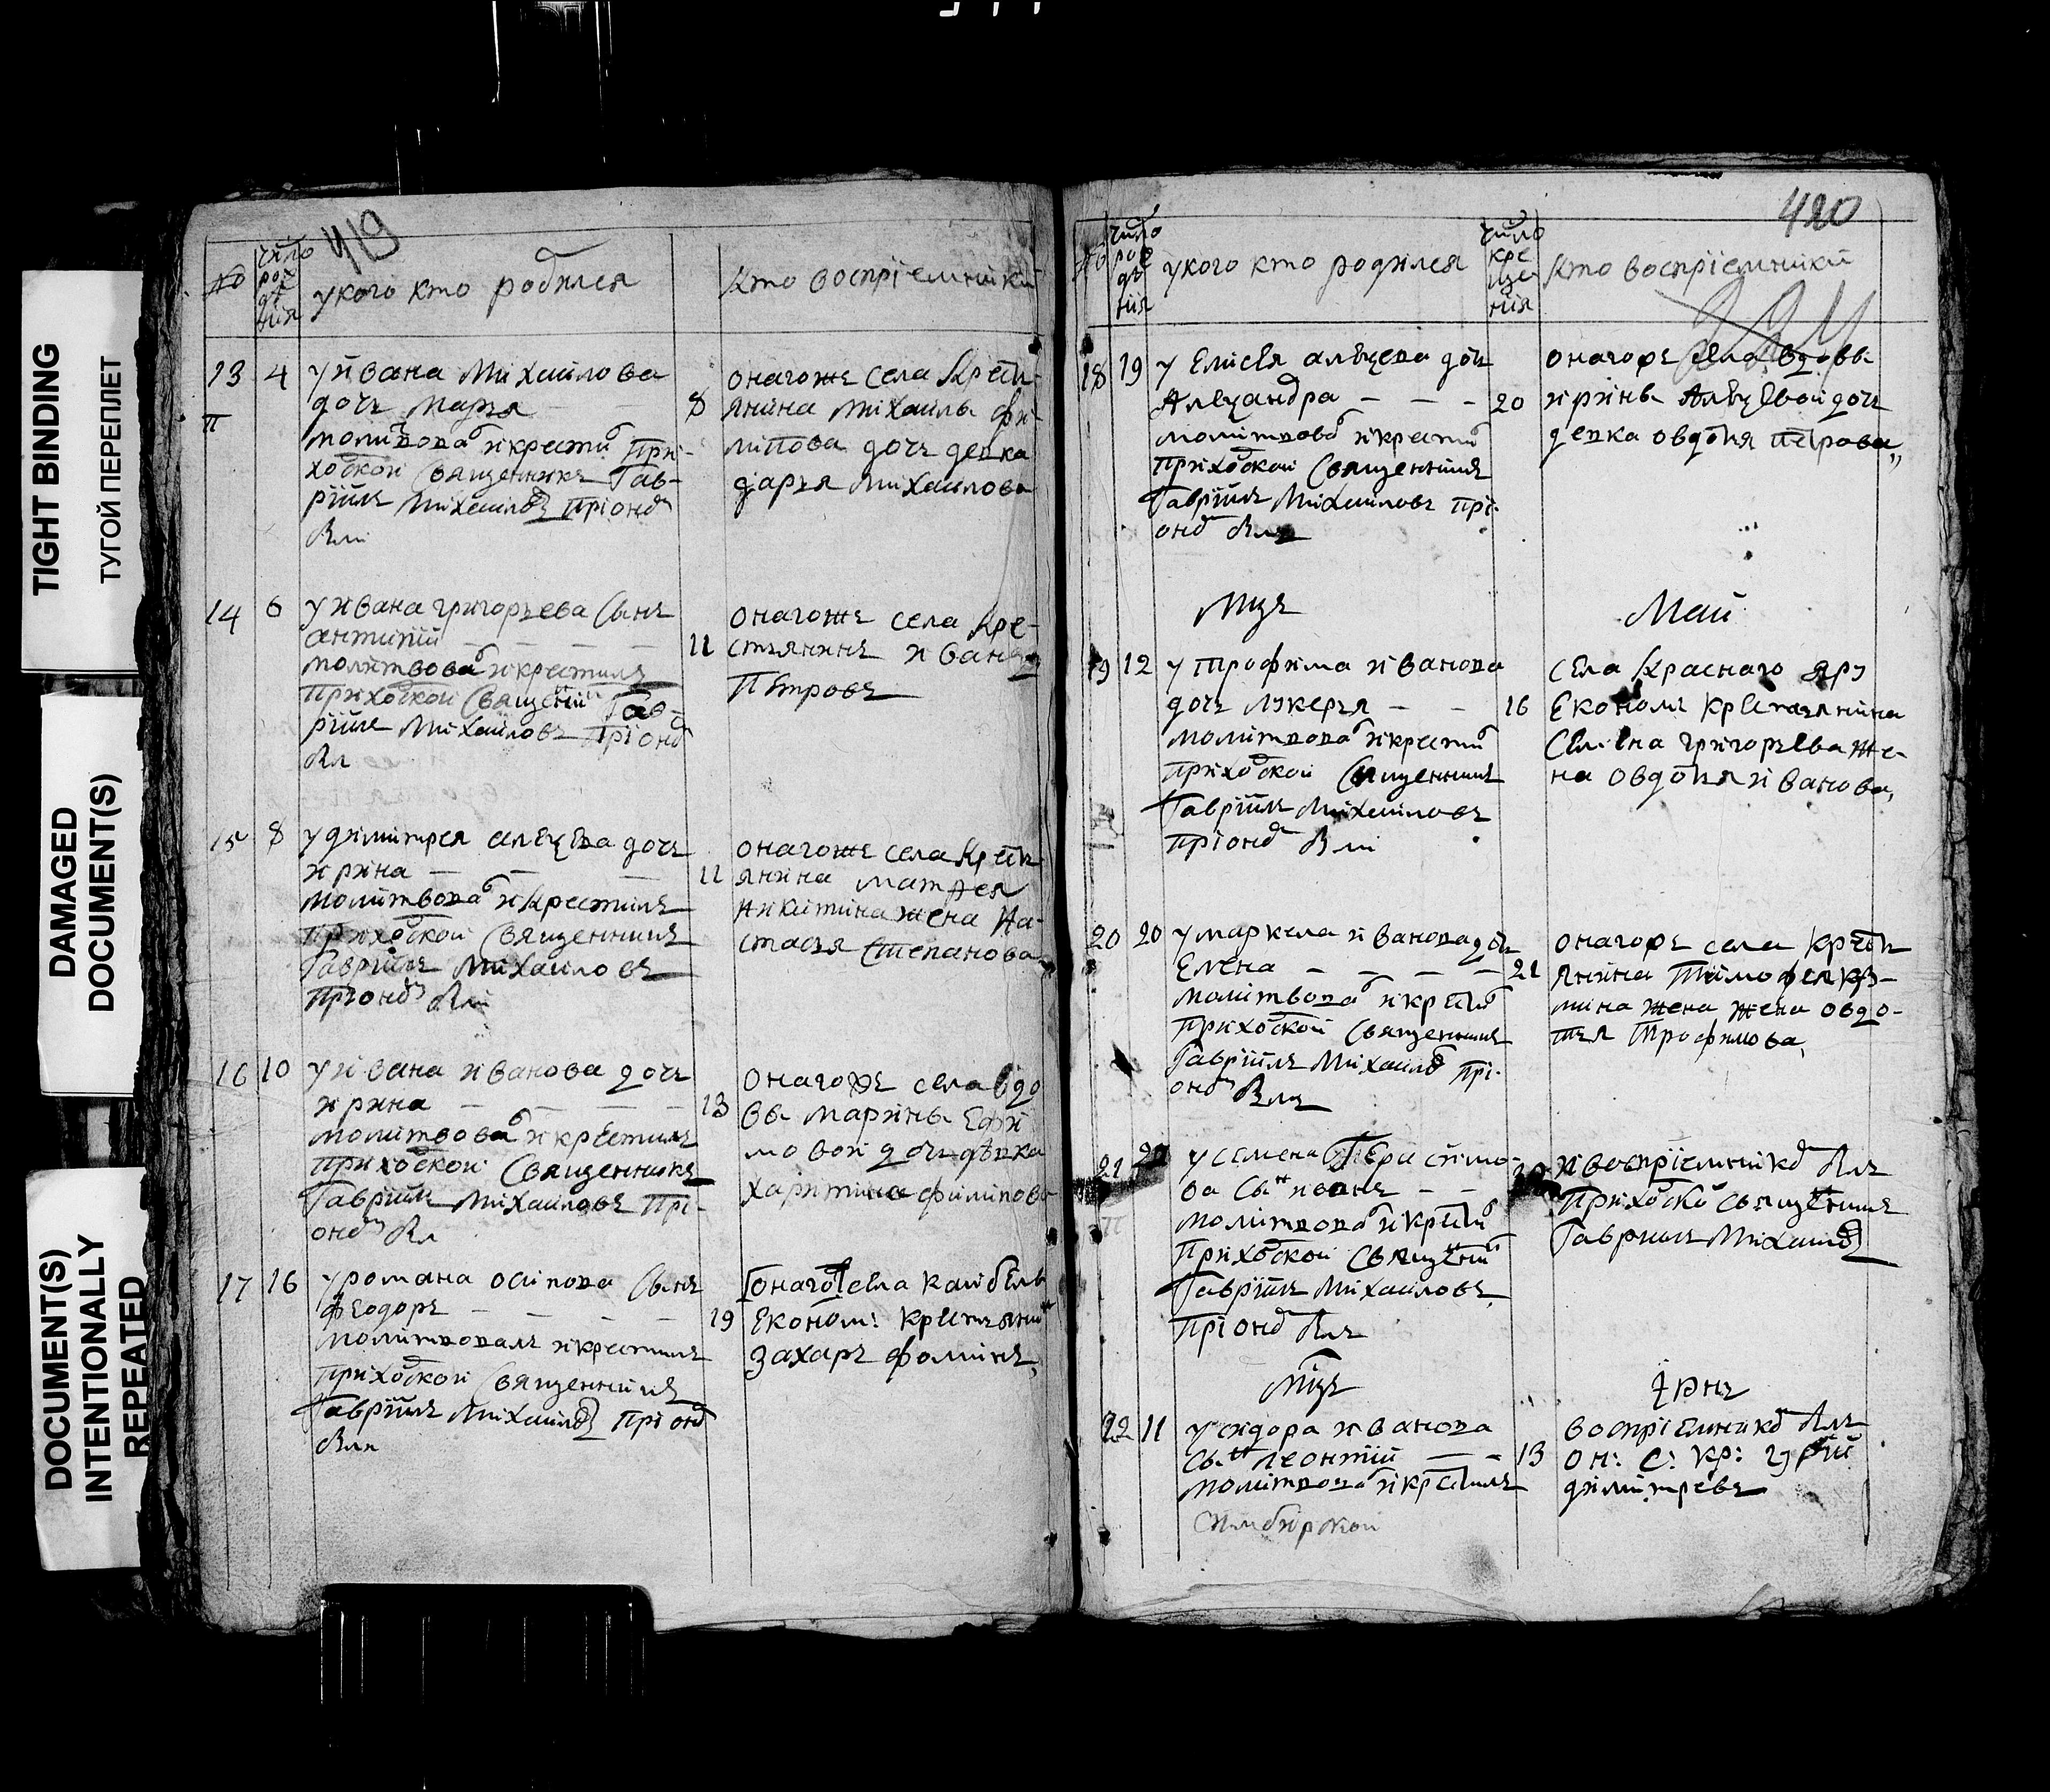 TIGHT BINDING
ТУГОЙ ПЕРЕПЛЕТ
DAMAGED
DOCUMENT(S)
DOCUMENT(S)
INTENTIONALLY
REPEATED
419
№
число
рож
дѣ
нія
укого кто родился
кто воспрiемники
13 4 уйвана михаилова
дочь марья
молитвовал и крестил при-
ходской священникъ Гав-
рiилъ михаиловъ прi онд
8 онагоже села крест-
янина михаилы фи-
липова дочь девка
дарья михаилова
14 6 уивана григорьева сынъ
антипiй
молитвовал и крестилъ
приходской священни Гав-
рiилъ михаиловъ прi онд
11 онагоже села кре-
стьянинъ иванъ
петровъ
15 8 удимитрея алеѯева дочь
ирина
молитвовал и крестилъ
приходской священникъ
Гаврiилъ михаиловъ
прi онд
11 онагоже села крест-
янина матфея
никитина жена на-
стасья степанова
16 10 уивана иванова дочь
ирина
молитвовал и крестилъ
приходской священникъ
Гаврiилъ михаиловъ прi-
онд
13 онагоже села вдо
вы марины ефи
мовой дочь дѣвка
харитина филипова
17 16 уромана осипова сынъ
феодоръ
молитвовалъ и крестилъ
приходской священникъ
Гаврiилъ михаиловъ прi онд
19 онаго села
економ: крестьянин
захаръ фоминъ
420
№
число
рож
дѣ
нія
укого кто родился
число
кре
ще
нія
кто воспрiемники
18 19 у елисея алеѯева дочь
Алеѯандра
молитвовал и крестил
приходской священникъ
Гаврiилъ михаиловъ прi-
онд
20 онагоже села вдовы
ирины Алеѯевой дочь
девка овдотя петрова
мцъ Май
19 12 у трофима иванова
дочь лукерья
молитвовал и крестил
приходской священникъ
Гаврiилъ михаиловъ
прi онд
16 села красного яру
економъ крестьянина
семена григорьева же-
на овдотя иванова
20 20 умаркела иванова дочь
елена
молитвовал и крестил
приходской священникъ
Гаврiилъ михаилов прi-
онд
21 онагоже села крест
янина тимофея кз-
мина жена жена овдо-
тья трофимова
21 усемена Гераси мо-
ва сынъ иванъ
молитвовал и крестил
приходской священни
Гаврiилъ михаиловъ
прi онд
и воспрiемником
приходской священникъ
Гаврiилъ михаиловъ
мцъ iюнь
22 11 усидора иванова
сынъ леонтiй
молитвовал и крестилъ
13 воспрiемником
он: с: кр:
димитревъ
симбирской